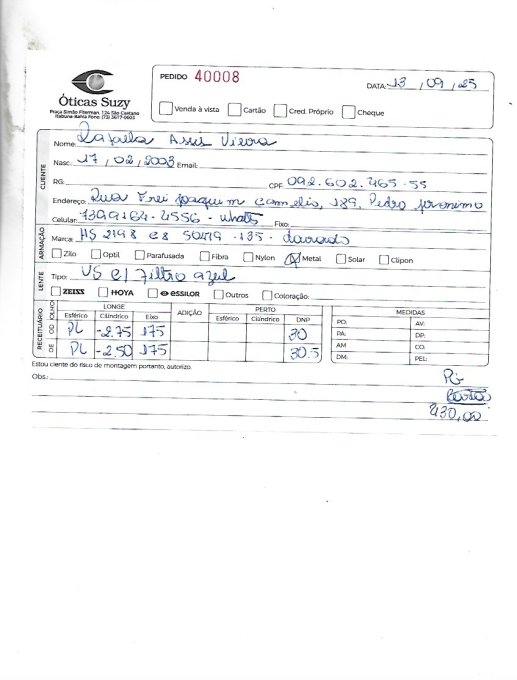 PEDIDO 40008
DATA: 13 / 09 / 25
Óticas Suzy
Praça Simão Fiterman, 124 São Caetano
Itabuna-Bahia Fone: (73) 3617-0603
Venda à vista Cartão Cred. Próprio Cheque
CLIENTE
Nome: Rafaella Assis Vieira
Nasc. 17 / 02 / 2003 Email:
RG: CPF: 092.602.465-55
Endereço: Rua Frei Joaquim 189, Pedro Jeronimo
Celular: 7399164-4556 - Whats Fixo:
ARMAÇÃO
Marca: HS 2198 C8 135 - dourado
Zilo Optil Parafusada Fibra Nylon Metal Solar Clipon
LENTE
Tipo: VS c/ Filtro azul
ZEISS HOYA essilor Outros Coloração:
RECEITUÁRIO
LONGE ADIÇÃO PERTO MEDIDAS
OLHO Esférico Cilíndrico Eixo Esférico Cilíndrico DNP
OD PL -2.75 175 30
OE PL -2.50 175 30.5
PO: AV:
PA: DP:
AM CO:
DM: PEL:
Estou ciente do risco de montagem portanto, autorizo.
Obs.:
430,00